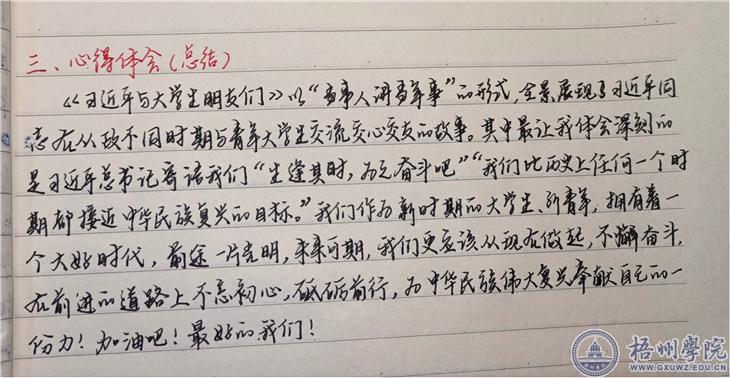 三、心得体会(总结)
《习近平与大学生朋友们》以“当事人讲当年事”的形式,全景展现了习近平同
志在从政不同时期与青年大学生交流交心交友的故事。其中最让我体会深刻的
是习近平总书记寄语我们“生逢其时,为之奋斗吧”“我们比历史上任何一个时
期都接近中华民族复兴的目标。”我们作为新时期的大学生、新青年,拥有着一
个大好时代,前途一片光明,未来可期,我们更应该从现在做起,不懈奋斗,
在前进的道路上不忘初心,砥砺前行,为中华民族伟大复兴奉献自己的一
份力!加油吧!最好的我们!
梧州學院
WWW.GXUWZ.EDU.CN